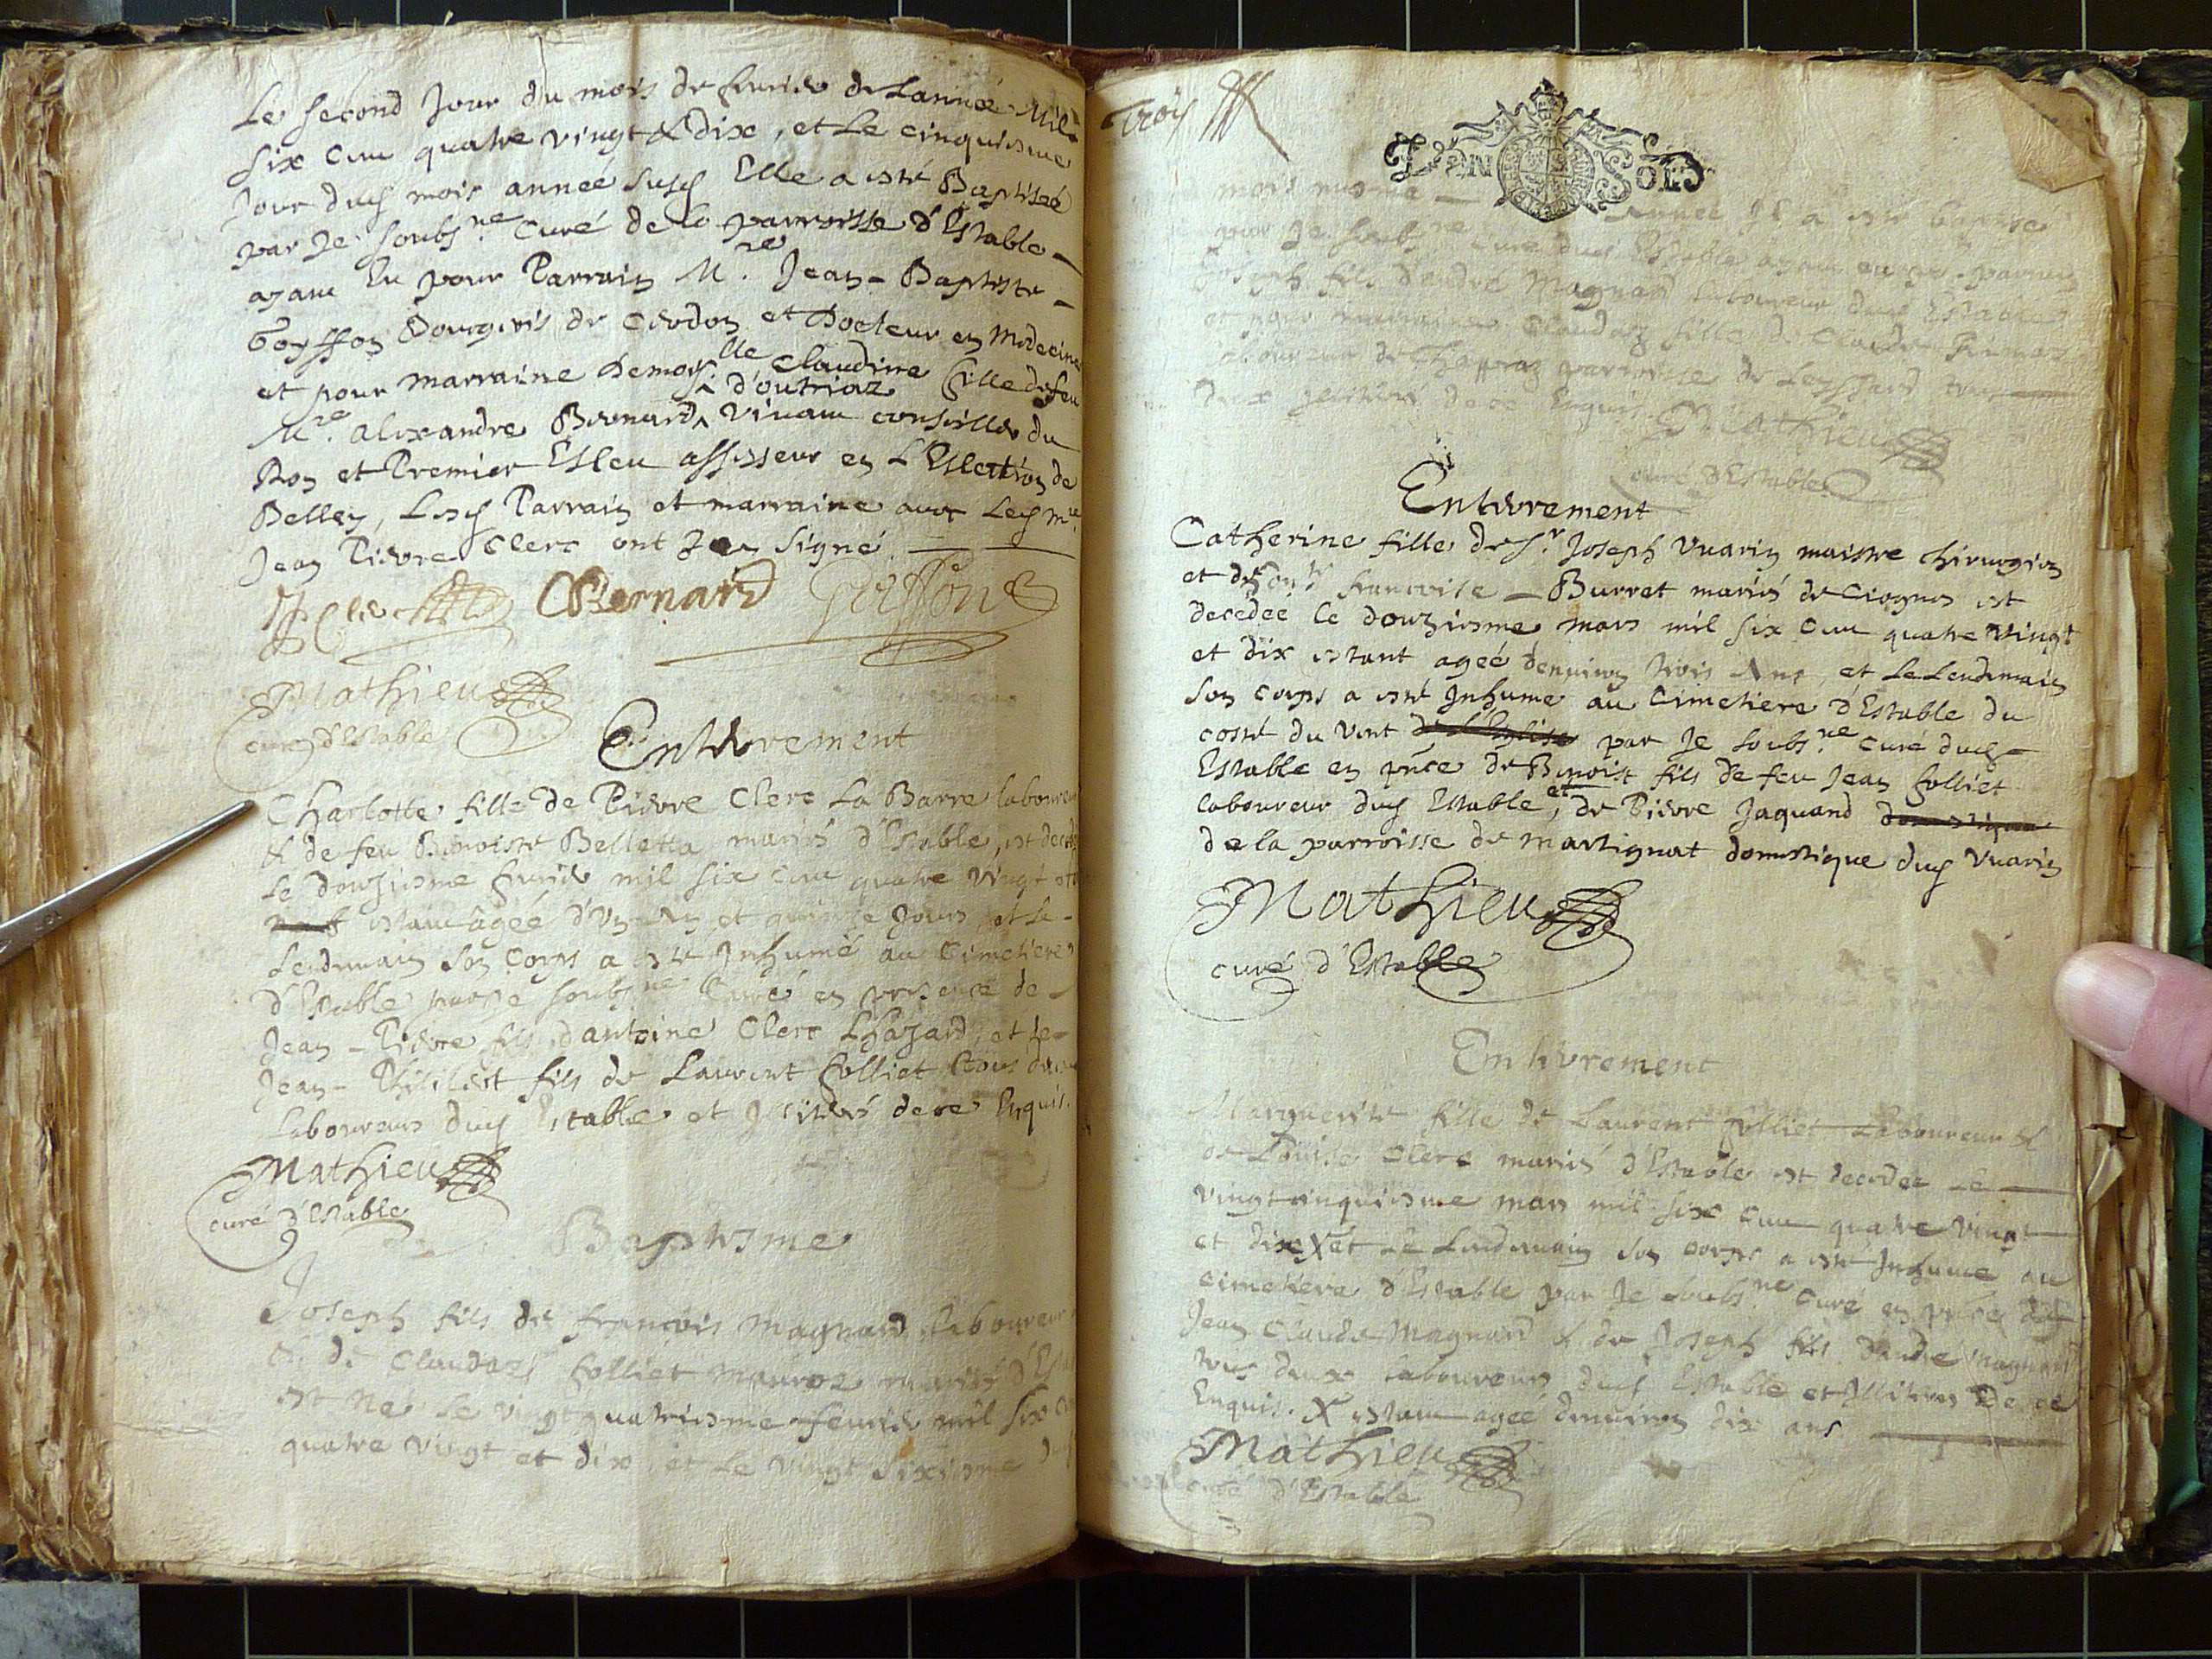 Le second Jour du mois de feurier de Lanneé Mil
six cens quatre vingt & dix, et Le cinquiesme
Jour dud mois anneé susd Elle a esté Baptiseé
par Je soubs.ne Curé de la parroisse d'Estable
ayant Eu pour Parrain M.re Jean-Baptiste
Goyffon Bourgeois de Cerdon et Docteur en Medecine
et pour marraine Demois.lle Claudine fille de feu
M.re alexandre Bernard d'outriaz viuant conseiller du
Roy et Premier Esleu assesseur en L'Eslection de
Belley, Lesd Parrain et marraine auec Led m.re
Jean Pierre Clerc ont Icy signé.
JP Clerc CBernard Goiffon
Mathieu
curé d'Estable
Enterrement
Charlotte fille de Pierre Clerc La Barre laboureur
& de feu Benoiste Belletta mariés d'Estable, est decedeé
Le douziesme feurier mil six cens quatre vingt et
estant ageé d'Vn An et quinze Jours et Le
Lendemain son Corps a esté Inhumé au Cimetiere
d'Estable par Je soubs.ne Curé en presence de
Jean-Pierre fils d'antoine Clerc Lhazard, et de
Jean-Philibert fils de Laurent folliet tous deux
Laboureurs dud Estable et Illiterés de ce Enquis.
Mathieu
curé d'Estable
Baptesme
Joseph fils de francois Magnard Laboureur
& de Claudaz folliet mariés
est né Le vingt quatriesme feurier mil six
quatre vingt et dix, et Le vingt sixiesme
Trois
DEN SOLD
mois anneé Il a esté baptisé
par Je soubs.ne curé dud Estable ayant eu pour parrain
Joseph fils d'André Magnard laboureur dud Estable
et pour marraine Claudaz fille de Claude
laboureur de parroisse de Leyssard tous
deux Illiterés de ce Enquis. Mathieu
curé d'Estable
Enterrement
Catherine fille de S.r Joseph Vuarin maistre chirurgien
et de francoise Burret mariés de Ciognes est
decedeé le douziesme mars mil six cens quatre vingt
et dix estant ageé denuiron trois Ans, et Le Lendemain
son corps a esté Inhumé au Cimetiere d'Estable du
costé du vent de L'Eglise par Je soubs.ne curé dud
Estable en pnce de Benoist fils de feu Jean folliet
laboureur dud Estable, et de Pierre Jaquand domestique
de la parroisse de martignat domestique dud Vuarin
Mathieu
curé d'Estable
Enterrement
Marguerite fille de Laurent folliet Laboureur &
de Louise Clerc mariés d'Estable est decedeé Le
vingtcinquiesme mars mil six cens quatre vingt
et dix X et Le Lendemain son corps a esté Inhumé au
cimetiere d'Estable par Je soubs.ne Curé en pnce de
Jean Claude Magnard & de Joseph fils d'andré magnard
tous deux laboureurs dud Estable et Illiterés de ce
Enquis. X estant ageé denuiron dix ans
Mathieu
curé d'Estable